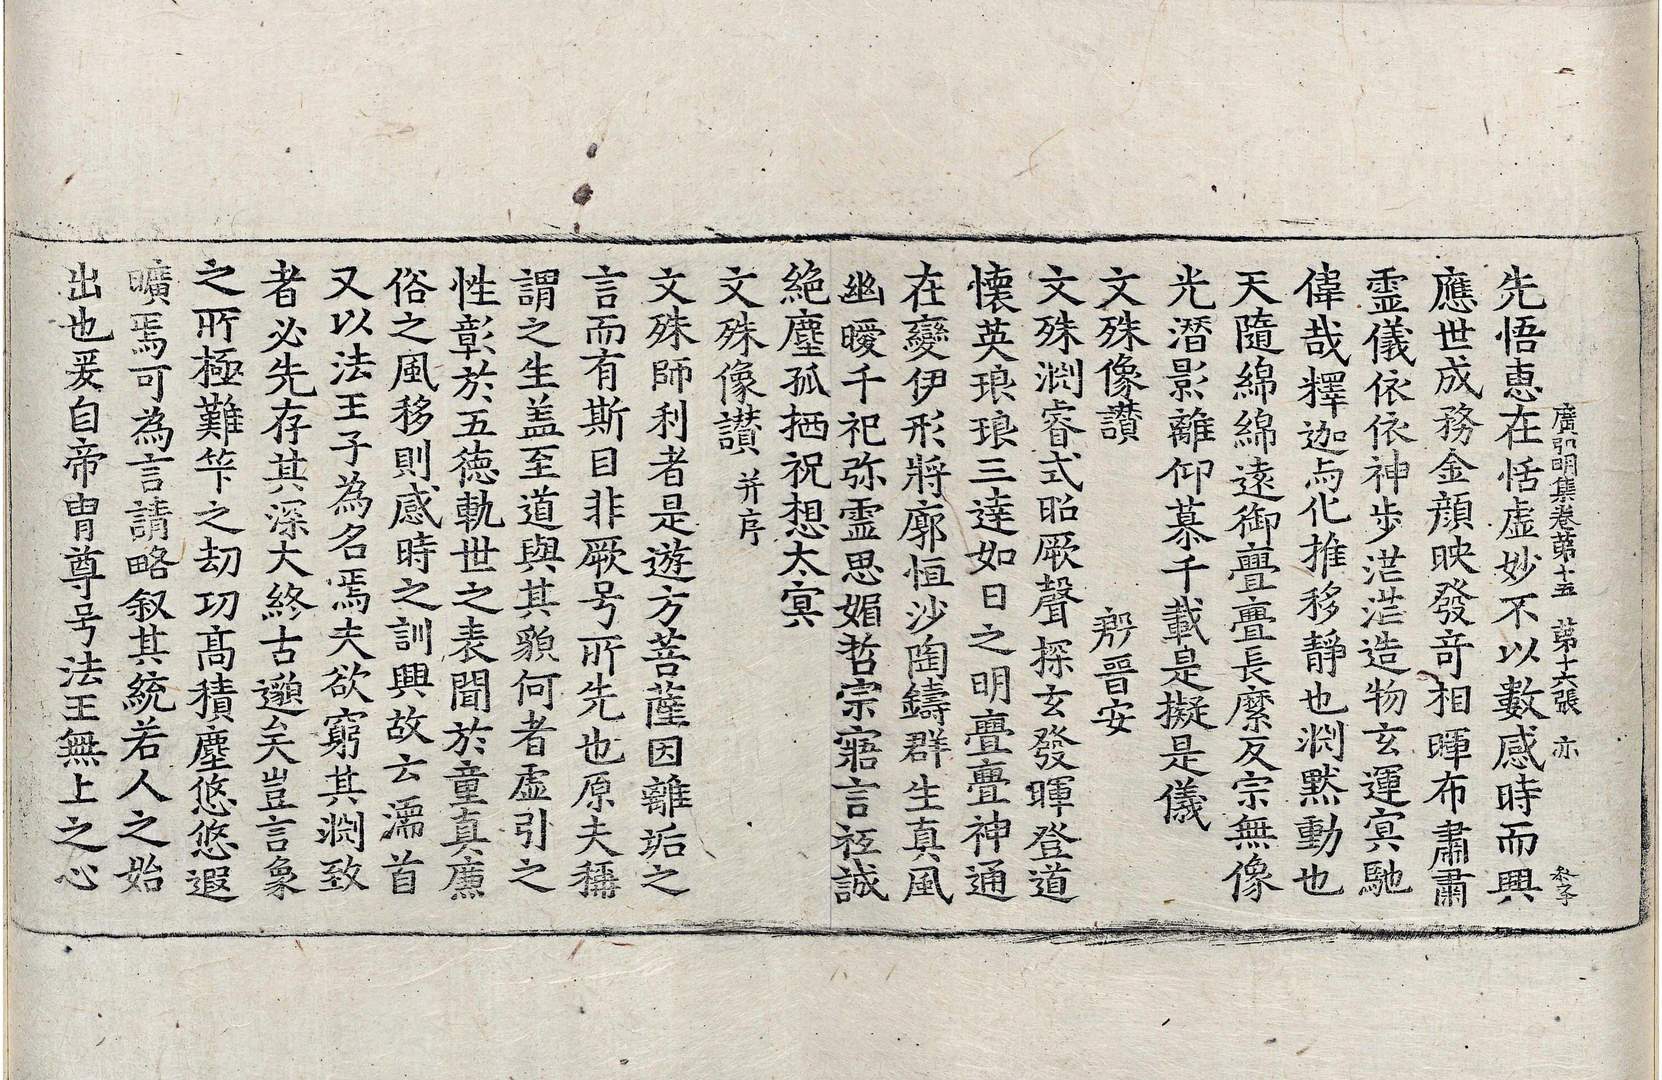 廣弘明集卷第十五 第十六張 亦
先悟恵在恬虛妙不以數感時而興
應世成務金顔映發竒相暉布肅肅
霊儀依依神步茫茫造物玄運㝠馳
偉哉釋迦与化推移静也渕黙動也
天隨綿綿遠御亹亹長縻反宗無像
光潜影離仰慕千載是擬是儀
文殊像讃 殷晋安
文殊渕睿式昭厥聲探玄發暉登道
懐英琅琅三達如日之明亹亹神通
在變伊形將廓恒沙陶鑄群生真風
幽曖千祀弥霊思媚哲宗寤言祗誠
絶塵孤栖祝想太㝠
文殊像讃 并序
文殊師利者是遊方菩薩因離垢之
言而有斯目非厥号所先也原夫稱
謂之生盖至道與其貌何者虛引之
性彰於五徳軌世之表聞於童真廉
俗之風移則感時之訓興故云濡首
又以法王子為名焉夫欲窮其渕致
者必先存其深大終古邈矣豈言象
之所極難筭之劫功髙積塵悠悠遐
曠焉可為言請略叙其統若人之始
出也爰自帝胄尊号法王無上之心